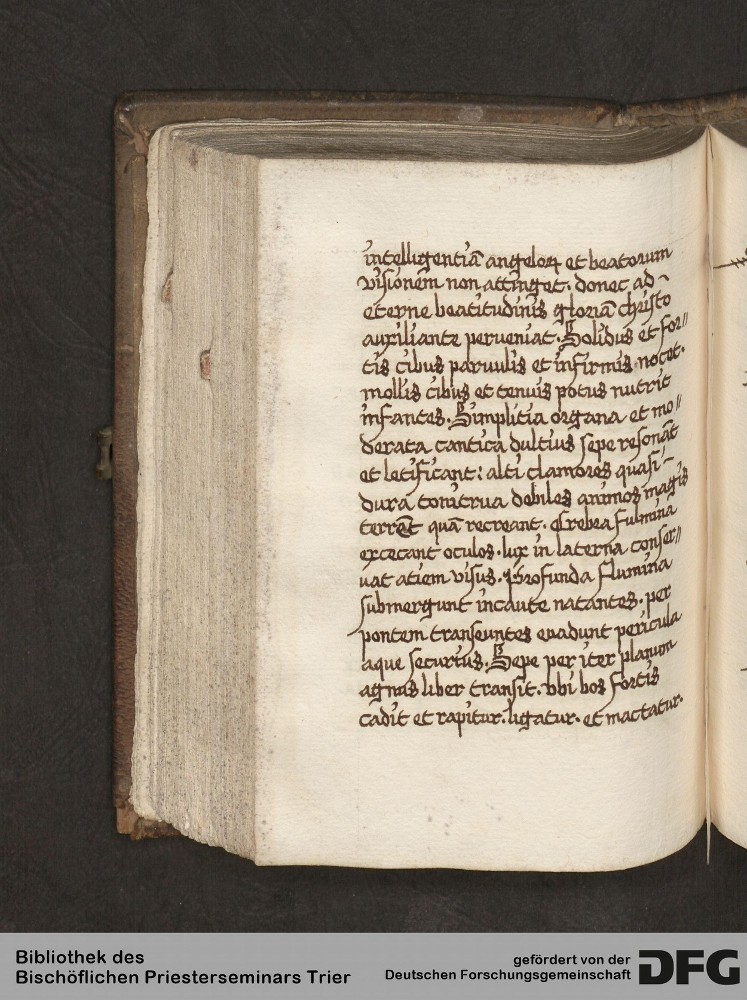 intelligentiā angeloꝝ et beatorum
visionem non attinget. donec ad
eterne beatitudinis gloriā christo
auxiliante perueniat. Solidus et for//
tis cibus paruulis et infirmis nocet.
mollis cibus et tenuis potus nutrit
infantes. Simplitia organa et mo//
derata cantica dultius sepe resonāt
et letificant: alti clamores quasi
dura tonitrua debiles animos magis
terrēt quā recreant. Crebra fulmina
excecant oculos. lux in laterna conser//
uat atiem visus. Profunda flumina
submergunt incaute natantes. per
pontem transeuntes euadunt pericula
aque securius. Sepe per iter planum
agnus liber transit. vbi bos fortis
cadit et rapitur. ligatur. et mactatur.
Bibliothek des
Bischöflichen Priesterseminars Trier
gefördert von der
Deutschen Forschungsgemeinschaft
DFG